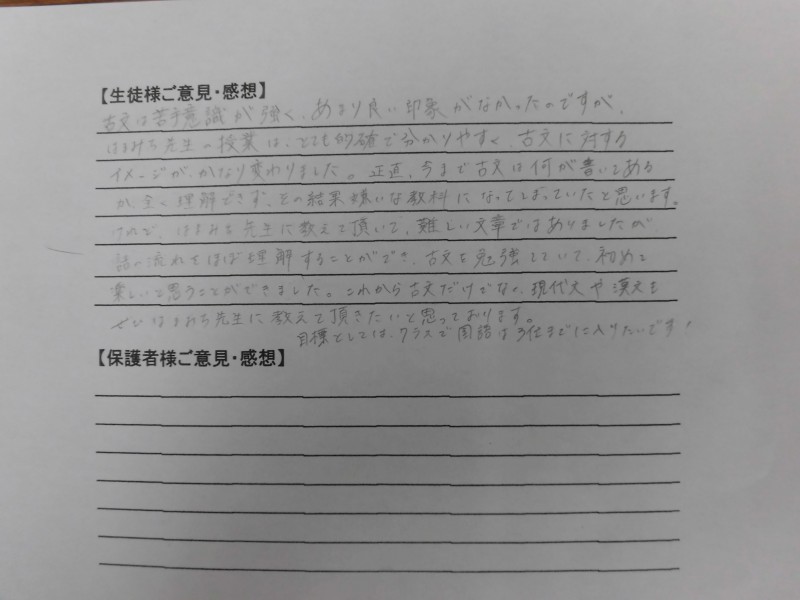 【生徒様ご意見・感想】
古文は苦手意識が強く、あまり良い印象がなかったのですが、
はまみち先生の授業は、とても的確で分かりやすく、古文に対する
イメージが、かなり変わりました。正直、今まで古文は何が書いてある
か全く理解できず、その結果嫌いな教科になってしまっていたと思います。
けれど、はまみち先生に教えて頂いて、難しい文章ではありましたが
話の流れをほぼ理解することができ、古文を勉強していて、初めて
楽しいと思うことができました。これから古文だけでなく、現代文や漢文も
ぜひはまみち先生に教えて頂きたいと思っております。
目標としては、クラスで国語は3位までに入りたいです!
【保護者様ご意見・感想】